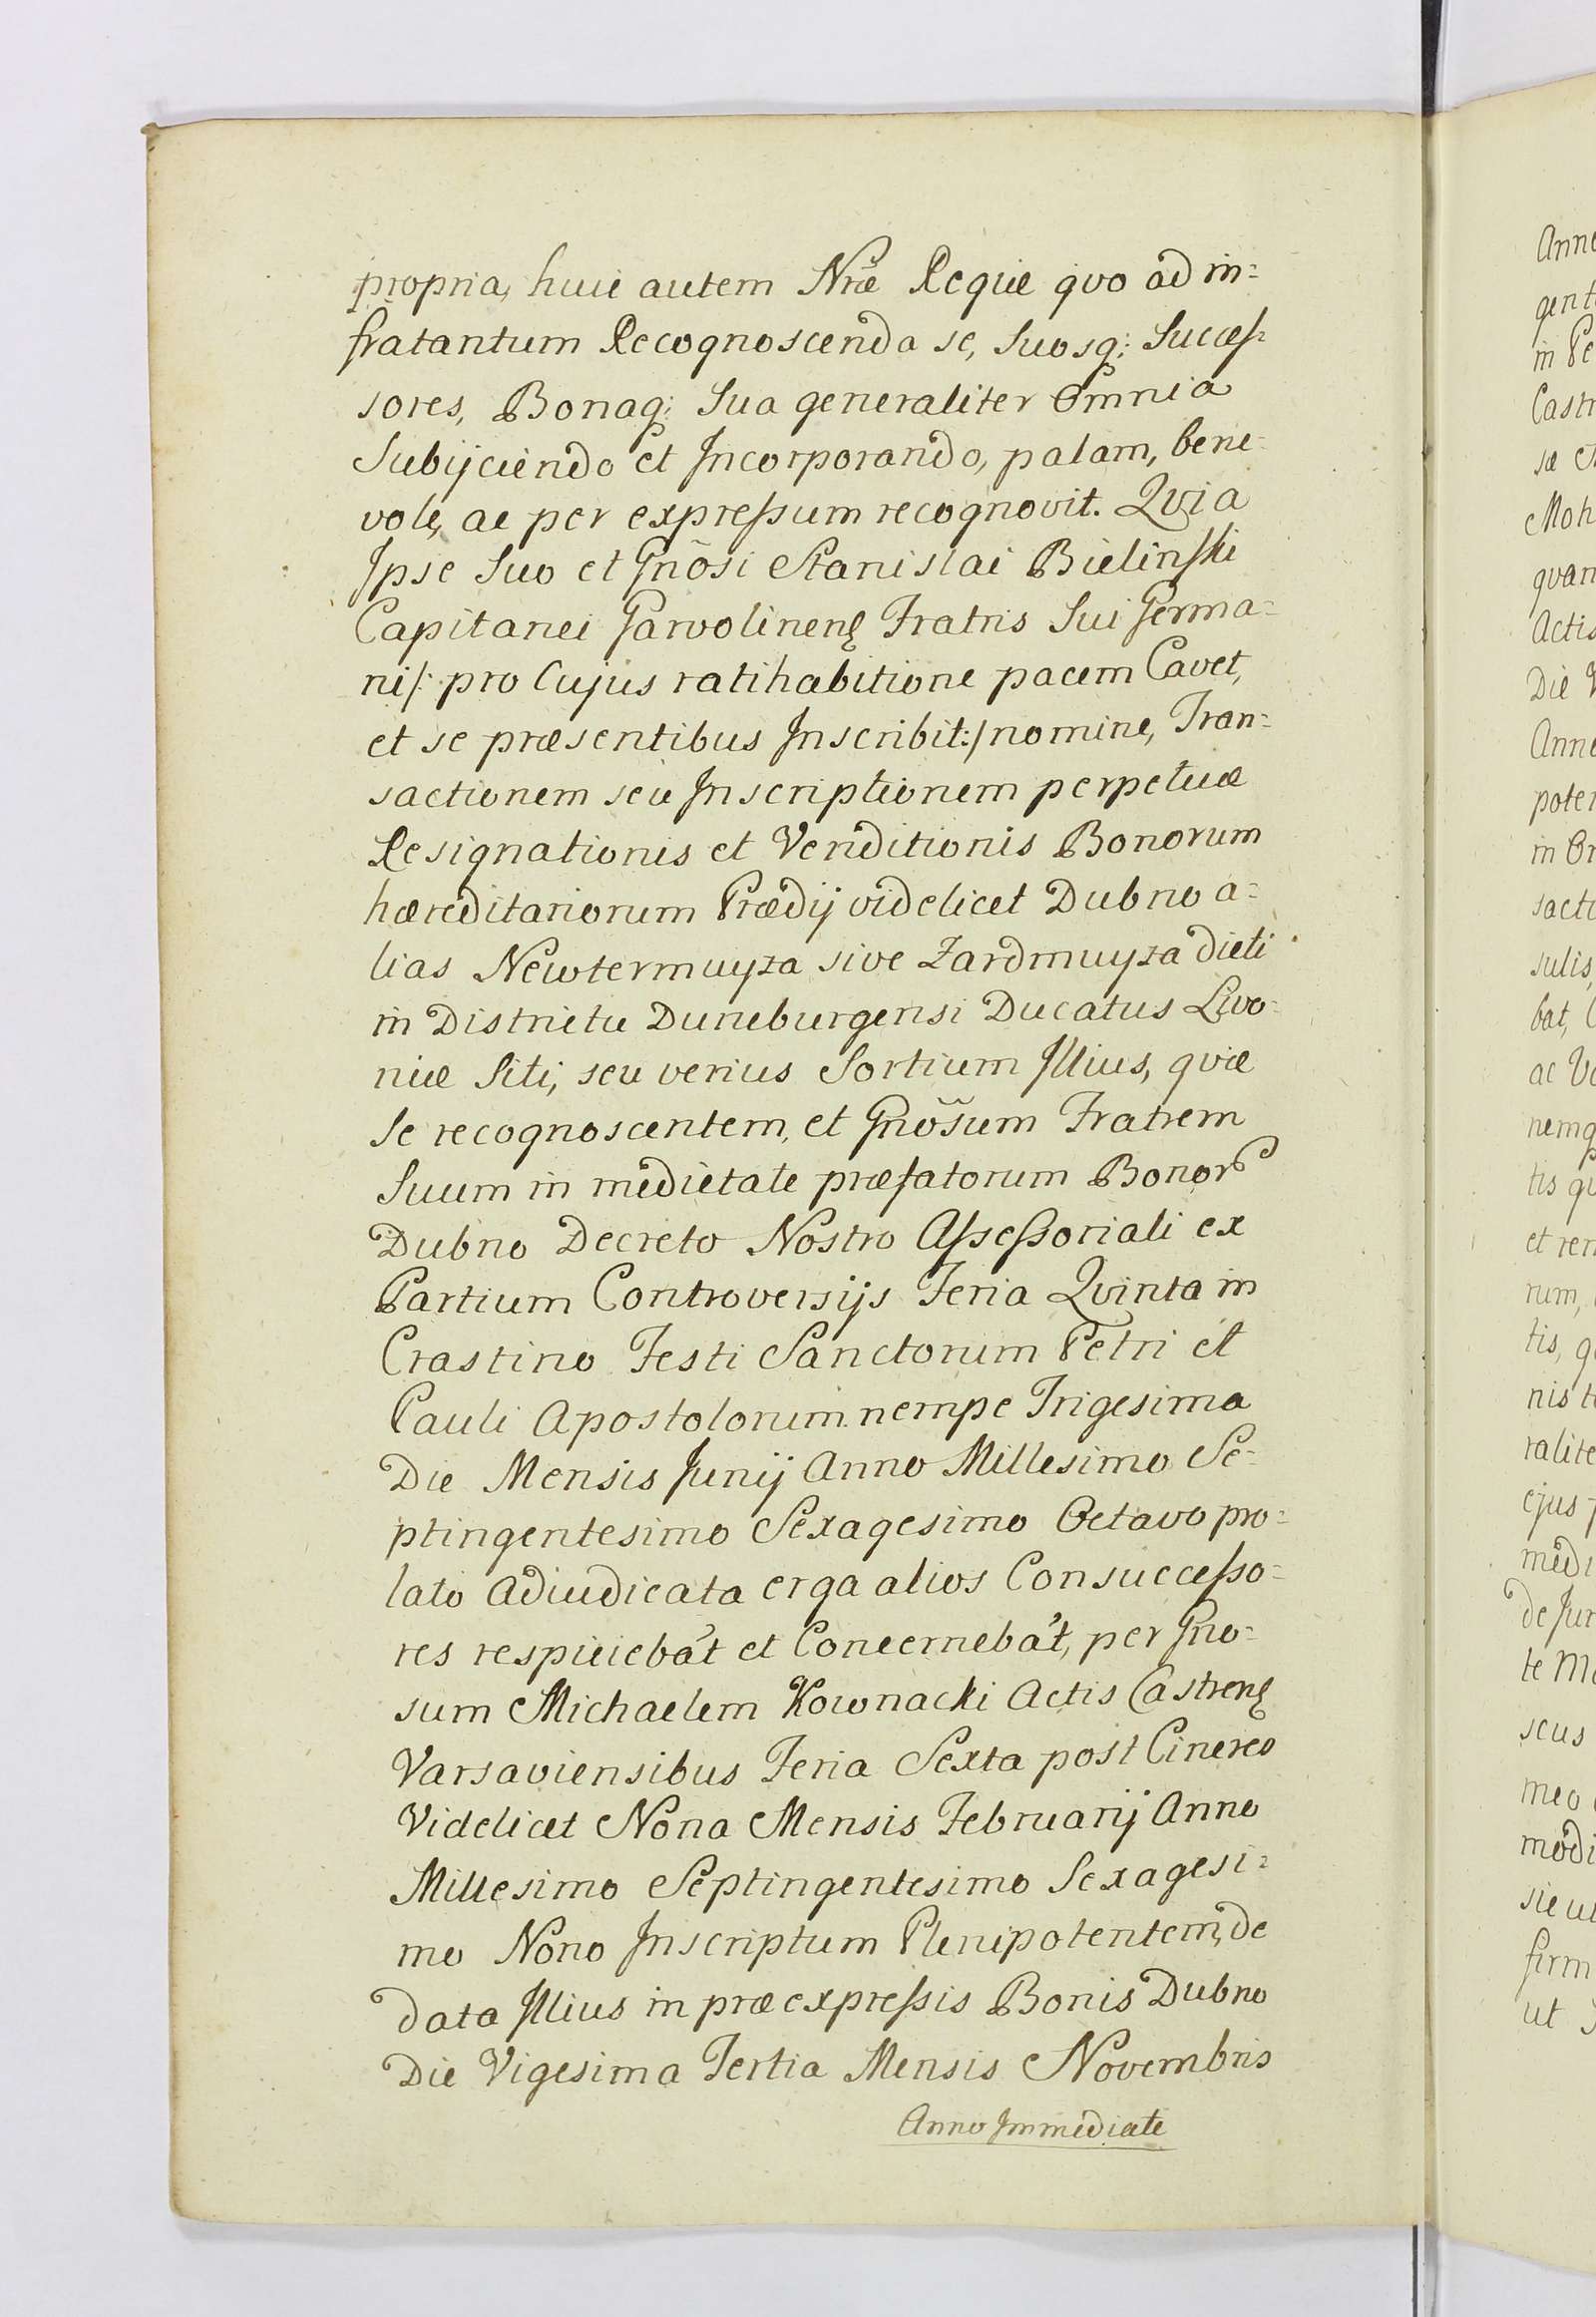 propria, huic autem Nræ Regiæ quo ad in=
fratantum Recognoscenda se, Suosq; Succes=
sores, Bonaq; Sua generaliter Omnia
Subijciendo et Incorporando, palam, bene-
vole, ac per expressum recognovit. Qvia
Ipse Suo et Gnõsi Stanislai Bielinski
Capitanei Garvolinens Fratris Sui Germa=
ni/: pro Cujus ratihabitione pacem Cavet,
et se præsentibus Inscribit:/ nomine, Tran=
sactionem seu Inscriptionem perpetuæ
Resignationis et Venditionis Bonorum
hæreditariorum Prædij videlicet Dubno a=
lias Newtermuyza sive Zardmuyza dicti
in Districtu Duneburgensi Ducatus Livo-
niæ Siti, seu verius Sortium Illius, qvæ
Se recognoscentem, et Gnõsum Fratrem
Suum in medietate præfatorum Bonor
Dubno Decreto Nostro Assessoriali ex
Partium Controversijs Feria Qvinta in
Crastino Festi Sanctorum Petri et
Pauli Apostolorum nempe Trigesima
Die Mensis Junij Anno Millesimo Se=
ptingentesimo Sexagesimo Octavo pro=
lato Adiudicata erga alios Consuccesso=
res respiciebāt et Concernebāt, per Gno=
sum Michaelem Kownacki Actis Castrens
Varsaviensibus Feria Sexta post Cineres
Videlicet Nona Mensis Februarij Anno
Millesimo Septingentesimo Sexagesi=
mo Nono Inscriptum Plenipotentem, de
data Illius in præexpressis Bonis Dubno
Die Vigesima Tertia Mensis Novembris
Anno Immediate